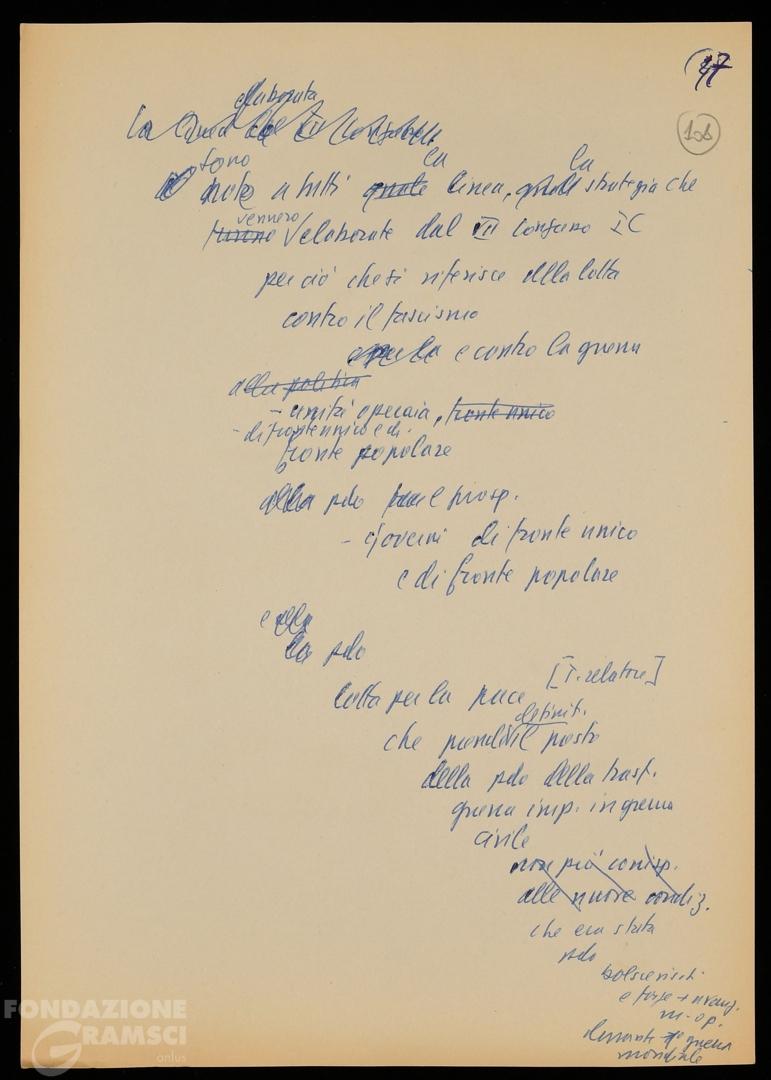 47
106
elaborata
la linea del VII Congresso
sono la la
note a tutti quale linea, quale strategia che
vennero
furono elaborate dal VII Congresso IC
per ciò che si riferisce alla lotta
contro il fascismo
e contro la guerra
alla politica
- unità operaia, fronte unico
- di fronte unico e di
fronte popolare
alla pdo prosp.
- governi di fronte unico
e di fronte popolare
e alla
la pdo
lotta per la pace [T. relatore]
definit.
che prende il posto
della pdo della trasf.
guerra imp. in guerra
civile
non più corrisp.
alle nuove condiz.
che era stata
pdo
bolscevichi
e forze + avanz.
m. op.
durante 1ª guerra
mondiale
FONDAZIONE
GRAMSCI
onlus